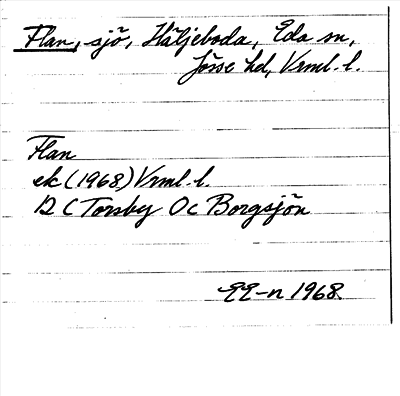 Flan, sjö, Häljeboda, Eda sn,
Jösse hd, Vrml. l.
Flan
ek (1968) Vrml. l.
12 C Torsby 0 c Borgsjön
EE-n 1968